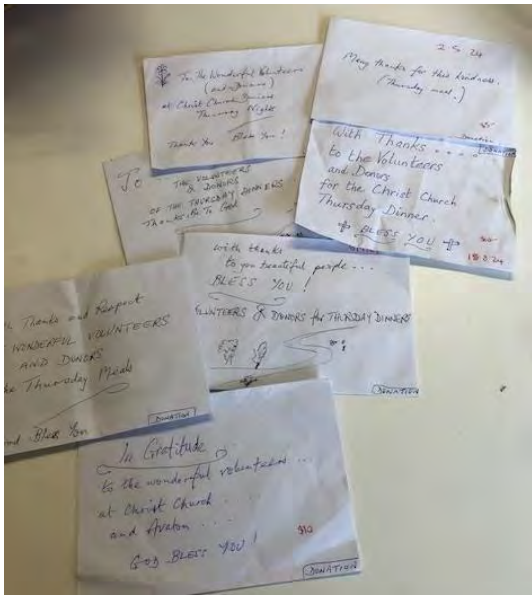 To The Wonderful Volunteers
(and Donors)
at Christ Church
Thursday Nights
Thank You Bless You!
2.5.24
Many thanks for their kindness.
(Thursday meal.)
Donation
With Thanks....
to the Volunteers
and Donors
for the Christ Church
Thursday Dinner.
BLESS YOU
To
THE VOLUNTEERS
& DONORS
OF THE THURSDAY DINNERS
Thanks Be To God
with thanks
to you beautiful people...
BLESS YOU!
VOLUNTEERS & DONORS for THURSDAY DINNERS
DONATION
Thanks and Respect
WONDERFUL VOLUNTEERS
AND DONORS
Thursday Meals
Bless You
DONATION
In Gratitude
to the wonderful volunteers...
at Christ Church..
and Avalon....
GOD BLESS YOU!
$10
DONATION